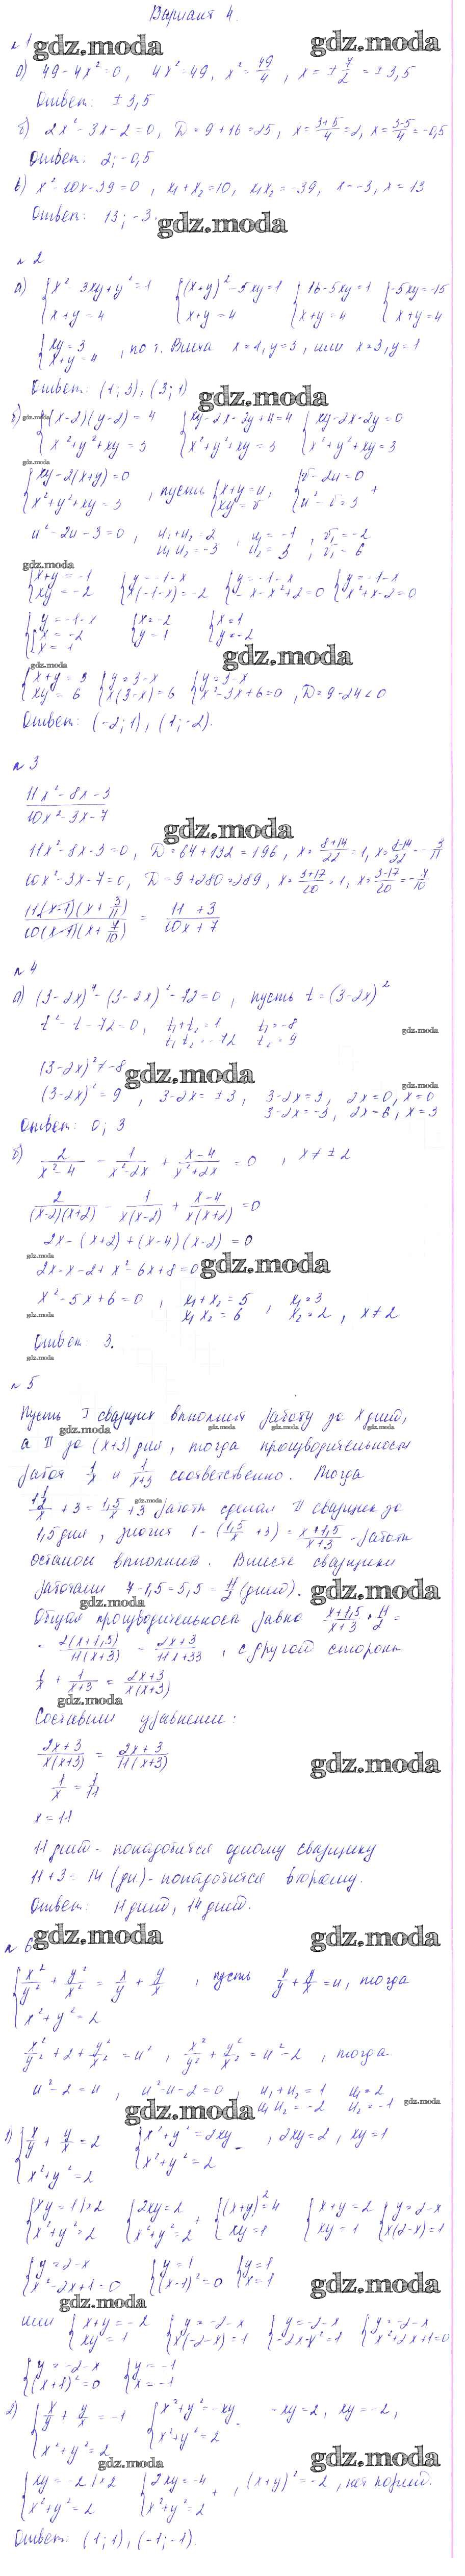 Вариант 4.
№1
а) 49-4x²=0, 4x²=49, x²=49/4, x=±7/2=±3,5
Ответ: ±3,5
б) 2x²-3x-2=0, D=9+16=25, x=(3+5)/4=2, x=(3-5)/4=-0,5
Ответ: 2; -0,5
в) x²-10x-39=0, x₁+x₂=10, x₁x₂=-39, x=-3, x=13
Ответ: 13; -3.
№2
а) {x² 3xy+y²=1 {(x+y)²-5xy=1 {16-5xy=1 {-5xy=-15
x+y=4 x+y=4 x+y=4 x+y=4
{xy=3
x+y=4, по т. Виета x=1, y=3, или x=3, y=1
Ответ: (1;3), (3;1)
б) {(x-2)(y-2)=4 {xy-2x-2y+4=4 {xy-2x-2y=0
x²+y²+xy=3 x²+y²+xy=3 x²+y²+xy=3
{xy-2(x+y)=0 , пусть {x+y=u, {v-2u=0
x²+y²+xy=3 xy=v u²-v=3 +
u²-2u-3=0, u₁+u₂=2 u₁=-1, v₁=-2
u₁u₂=-3 u₂=3, v₁=6
{x+y=-1 {y=-1-x {y=-1-x {y=-1-x
xy=-2 x(-1-x)=-2 -x-x²+2=0 x²+x-2=0
{y=-1-x {x=-2 {x=1
x=-2 y=1 y=-2
x=1
{x+y=3 {y=3-x {y=3-x
xy=6 x(3-x)=6 x²-3x+6=0, D=9-24<0
Ответ: (-2;1), (1;-2).
№3
(11x²-8x-3)/(10x²-3x-7)
11x²-8x-3=0, D=64+132=196, x=(8+14)/22=1, x=(8-14)/22=-3/11
10x²-3x-7=0, D=9+280=289, x=(3+17)/20=1, x=(3-17)/20=-7/10
11(x-1)(x+3/11)/10(x-1)(x+7/10) = (11+3)/(10x+7)
№4
а) (3-2x)⁴-(3-2x)²-72=0, пусть t=(3-2x)²
t²-t-72=0, t₁+t₂=1 t₁=-8
t₁t₂=-72 t₂=9
(3-2x)²≠-8
(3-2x)²=9, 3-2x=±3, 3-2x=3, 2x=0, x=0
3-2x=-3, 2x=6, x=3
Ответ: 0; 3
б) 2/(x²-4) - 1/(x²-2x) + (x-4)/(x²+2x) = 0, x≠±2
2/((x-2)(x+2)) - 1/(x(x-2)) + (x-4)/(x(x+2)) =0
2x-(x+2)+(x-4)(x-2)=0
2x-x-2+x²-6x+8=0
x²-5x+6=0, x₁+x₂=5, x₁=3
x₁x₂=6 x₂=2, x≠2
Ответ: 3.
№5
Пусть I сварщик выполнит работу за x дней,
а II за (x+3) дня, тогда производительность
работ 1/x и 1/(x+3) соответственно. Тогда
+3 = 1,5/x+3 работы сделал II сварщик за
1,5 дня, значит 1-(1,5/x+3)=(x+1,5)/(x+3) - работы
осталось выполнить. Вместе сварщики
работали 7-1,5=5,5=11/2 (дней).
Общая производительность равна (x+1,5)/(x+3) : 11/2 =
= 2(x+1,5)/11(x+3) = (2x+3)/(11x+33), с другой стороны
1/x + 1/(x+3) = (2x+3)/(x(x+3))
Составим уравнение:
(2x+3)/(x(x+3)) = (2x+3)/(11(x+3))
1/x = 1/11
x=11
11 дней - понадобится одному сварщику
11+3=14 (дн) - понадобится второму.
Ответ: 11 дней, 14 дней.
№6
{x²/y² + y²/x² = x/y + y/x , пусть x/y + y/x = u, тогда
x²+y²=2
x²/y² + 2 + y²/x² = u², x²/y² + y²/x² = u²-2, тогда
u²-2=u, u²-u-2=0, u₁+u₂=1 u₁=2
u₁u₂=-2 u₂=-1
1) {x/y + y/x = 2 {x²+y²=2xy - , 2xy=2, xy=1
x²+y²=2 x²+y²=2
{xy=1|×2 {2xy=2 + {(x+y)²=4 {x+y=2 {y=2-x
x²+y²=2 x²+y²=2 xy=1 xy=1 x(2-x)=1
{y=2-x {y=1 {y=1
x²-2x+1=0 (x-1)²=0 x=1
или {x+y=-2 {y=-2-x {y=-2-x {y=-2-x
xy=1 x(-2-x)=1 -2x-x²=1 x²+2x+1=0
{y=-2-x {y=-1
(x+1)²=0 x=-1
2) {x/y + y/x = -1 {x²+y²=-xy - -xy=2, xy=-2,
x²+y²=2 x²+y²=2
{xy=-2|×2 {2xy=-4 + , (x+y)²=-2, нет корней.
x²+y²=2 x²+y²=2
Ответ: (1;1), (-1;-1).
gdz.moda